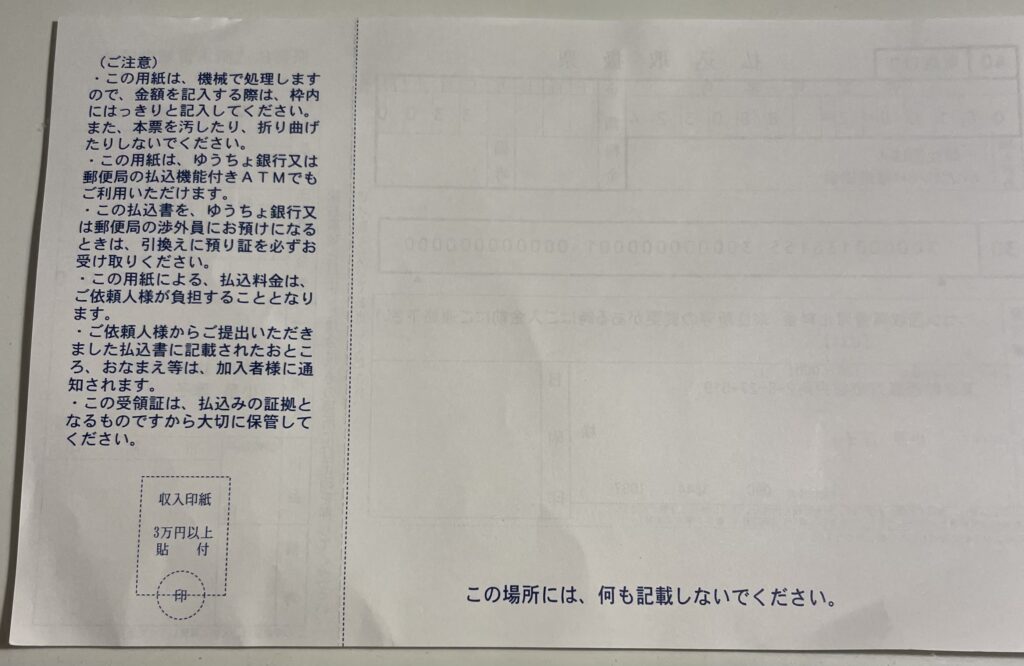 （ご注意）
・この用紙は、機械で処理しますので、金額を記入する際は、枠内にはっきりと記入してください。
また、本票を汚したり、折り曲げたりしないでください。
・この用紙は、ゆうちょ銀行又は郵便局の払込機能付きＡＴＭでもご利用いただけます。
・この払込書を、ゆうちょ銀行又は郵便局の渉外員にお預けになるときは、引換えに預り証を必ずお受け取りください。
・この用紙による、払込料金は、ご依頼人様が負担することとなります。
・ご依頼人様からご提出いただきました払込書に記載されたおところ、おなまえ等は、加入者様に通知されます。
・この受領証は、払込みの証拠となるものですから大切に保管してください。
収入印紙
3万円以上
貼　付
印
この場所には、何も記載しないでください。